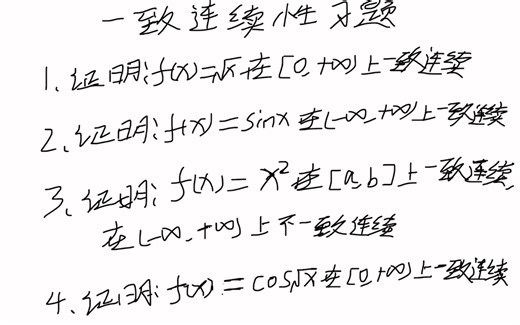 一致连续性习题
1、证明:f(x)=√x在[0,+∞)上一致连续
2、证明:f(x)=sinx在(-∞,+∞)上一致连续
3、证明:f(x)=x²在[a,b]上一致连续,
在(-∞,+∞)上不一致连续
4、证明:f(x)=cos√x在[0,+∞)上一致连续